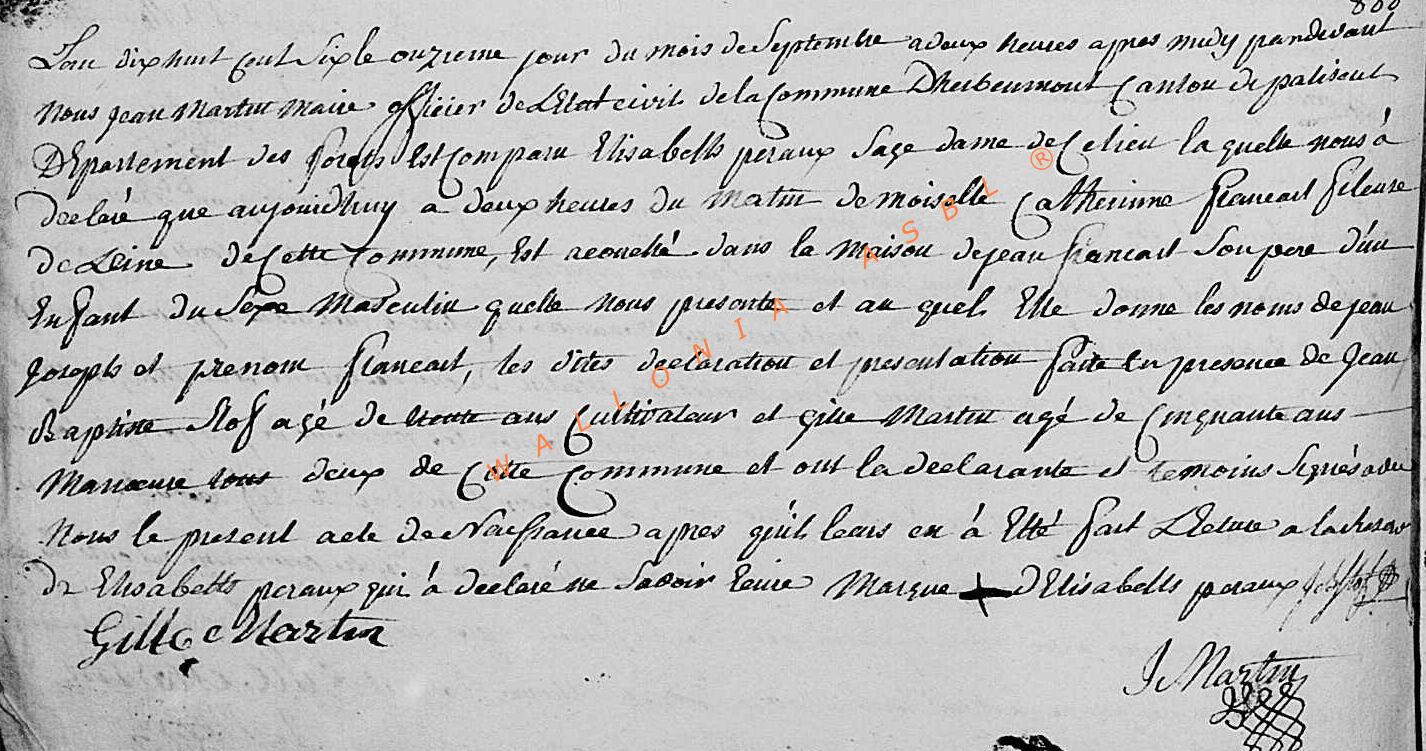 L'an dixhuit cent Six le onzieme jour du mois de Septembre a deux heures apres midy pardevant
Nous Jean Martin Maire officier de L'Etat civil de la Commune Dherbeumont Canton de paliseul
DEpartement des forets Est Comparu Elisabeth peraux Sage dame de Ce lieu la quelle nous à
declaré que aujourdhuy a deux heures du Matin demoiselle Catherinne francart fileuse
de Leine de Cette Commune, Est acouché dans la Maison de jean francart Son pere d'un
Enfant du Sexe Masculin quelle nous presente et au quel Elle donne les noms de jean
Joseph et prenom francart, les dites declaration et presentation faite En presence de Jean
Baptiste Stof agé de trente ans Cultivateur et gille Martin agé de Cinquante ans
Manoeuvre tous deux de Cette Commune et ont la declarante et temoins Signés avec
Nous le present acte de Naissance apres qu'il leurs en à Etté fait Lecture a la reserve
de Elisabeth peraux qui à declaré ne Savoir Ecrire Marque + d'Elisabeth peraux
Gille Martin
J. Martin
WALLONIA ASBL ®